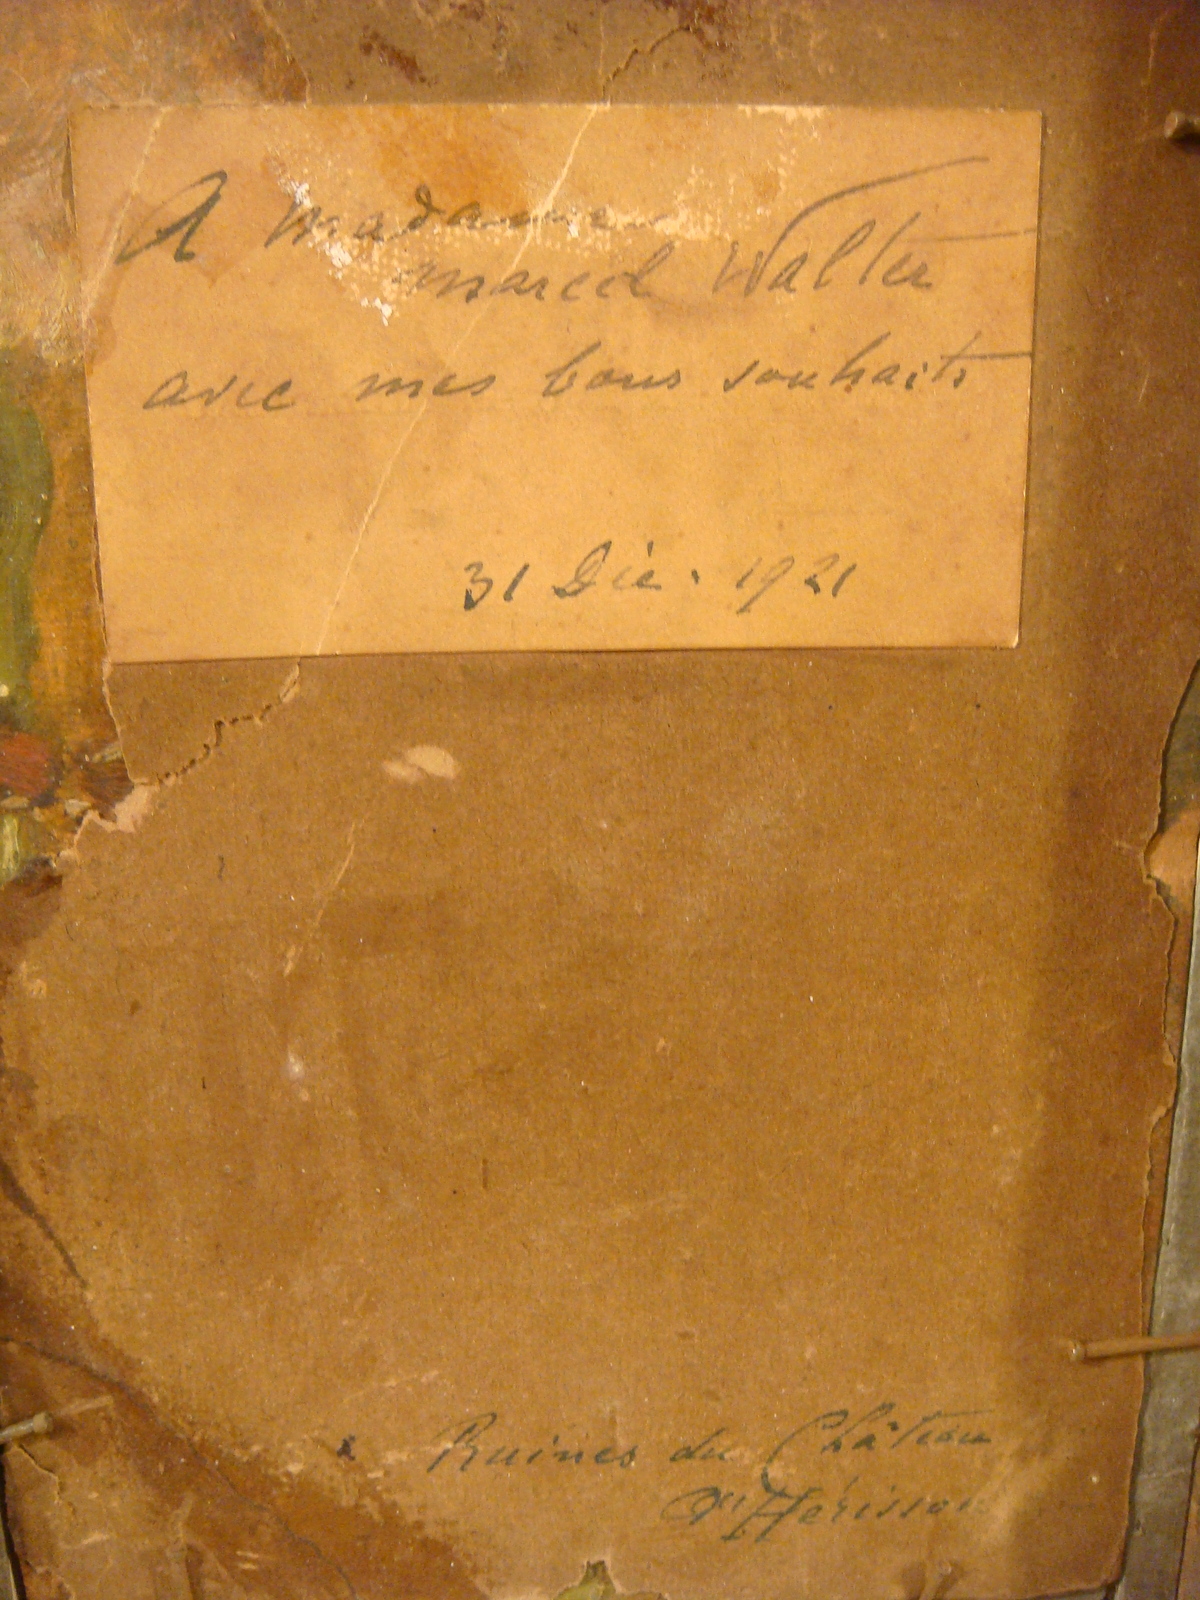 A Madame
Marcel Walter
avec mes bons souhaits
31 Déc. 1921
Ruines du Château
d'Hérisson